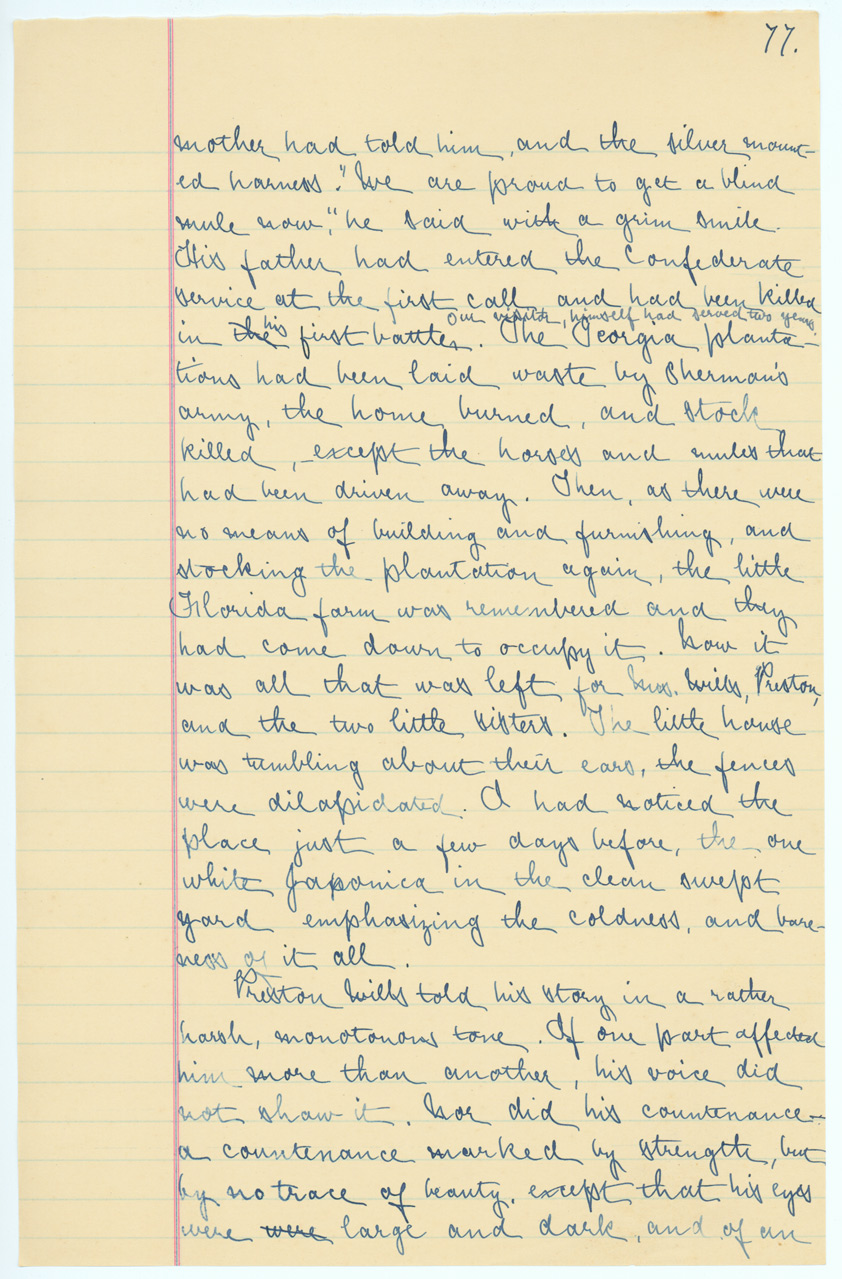 77.
mother had told him, and the silver mount-
ed harness." We are proud to get a blind
mule now," he said with a grim smile.
His father had entered the Confederate
service at the first call, and had been killed
Our visitor, himself had served two years.
in the his first battle. The Georgia planta-
tions had been laid waste by Sherman's
army, the home burned, and stock
killed, - except the horses and mules that
had been driven away. Then, as there were
no means of building and furnishing, and
stocking the plantation again, the little
Florida farm was remembered and they
had come down to occupy it. Now it
was all that was left for Mrs. Wills, Preston,
and the two little sisters. The little house
was tumbling about their ears, the fences
were dilapidated. I had noticed the
place just a few days before, the one
white Japonica in the clean swept
yard emphasizing the coldness, and bare-
ness of it all.
Preston Wills told his story in a rather
harsh, monotonous tone. If one part affected
him more than another, his voice did
not show it. Nor did his countenance -
a countenance marked by strength, but
by no trace of beauty, except that his eyes
were were large and dark, and of an